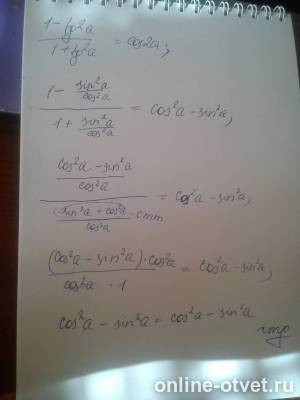 1 - tg²a / 1 + tg²a = cos2a;
1 - sin²a/cos²a / 1 + sin²a/cos²a = cos²a - sin²a;
cos²a - sin²a / cos²a / sin²a + cos²a / cos²a = cos²a - sin²a;
(cos²a - sin²a) · cos²a / cos²a · 1 = cos²a - sin²a;
cos²a - sin²a = cos²a - sin²a
online-otvet.ru